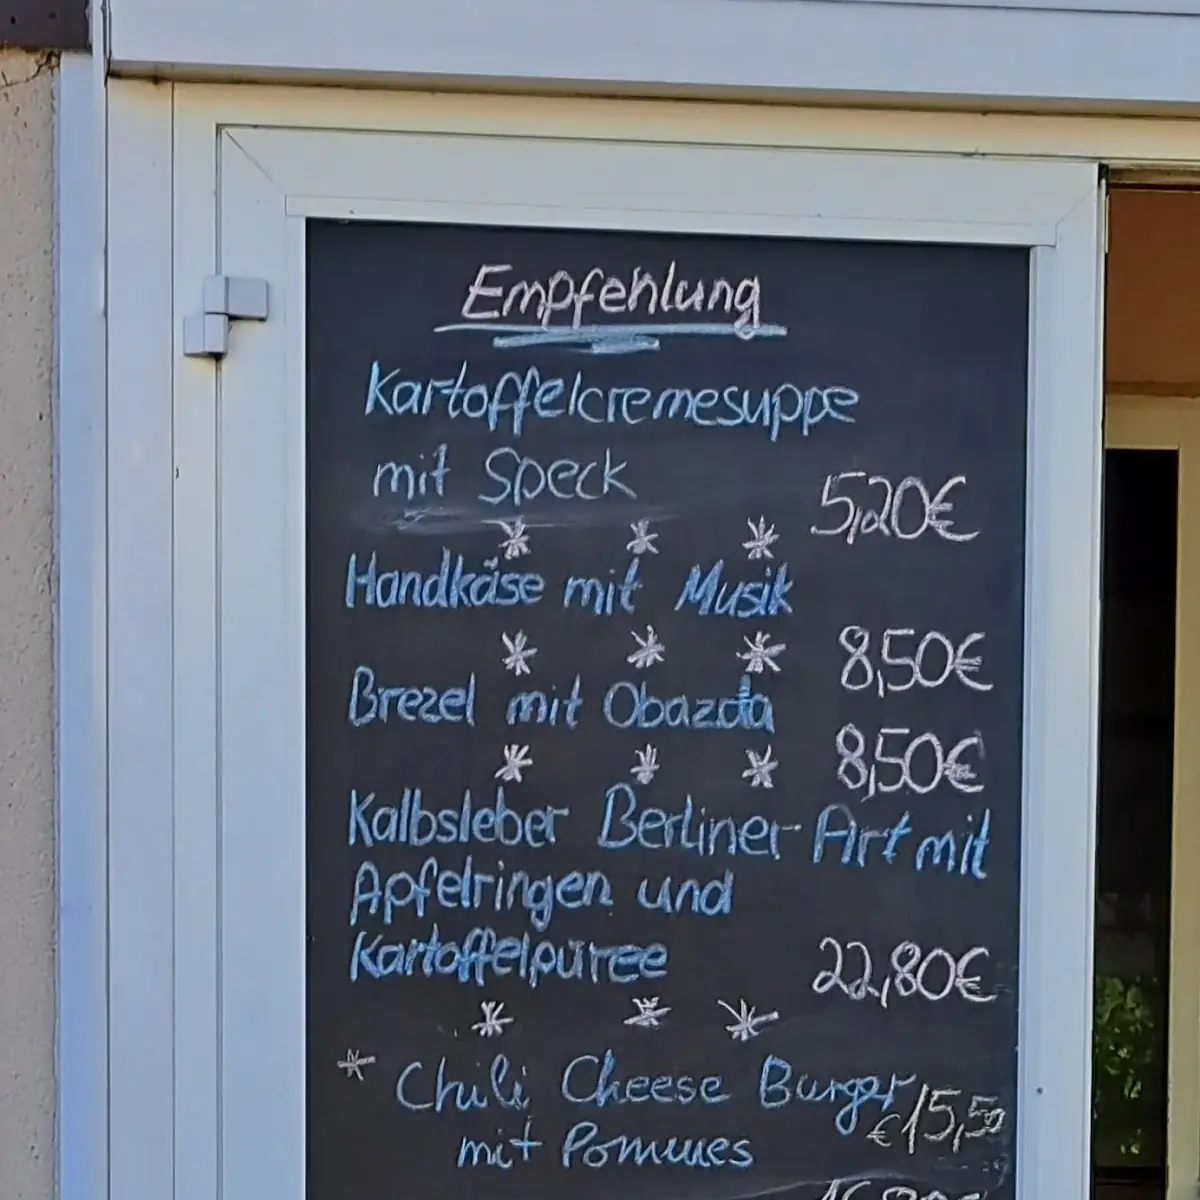 Empfehlung
Kartoffelcremesuppe
mit Speck 5,20€
* * *
Handkäse mit Musik
* * * 8,50€
Brezel mit Obazda
* * * 8,50€
Kalbsleber Berliner Art mit
Apfelringen und
Kartoffelpüree 22,80€
* * *
* Chili Cheese Burger €15,50
mit Pommes